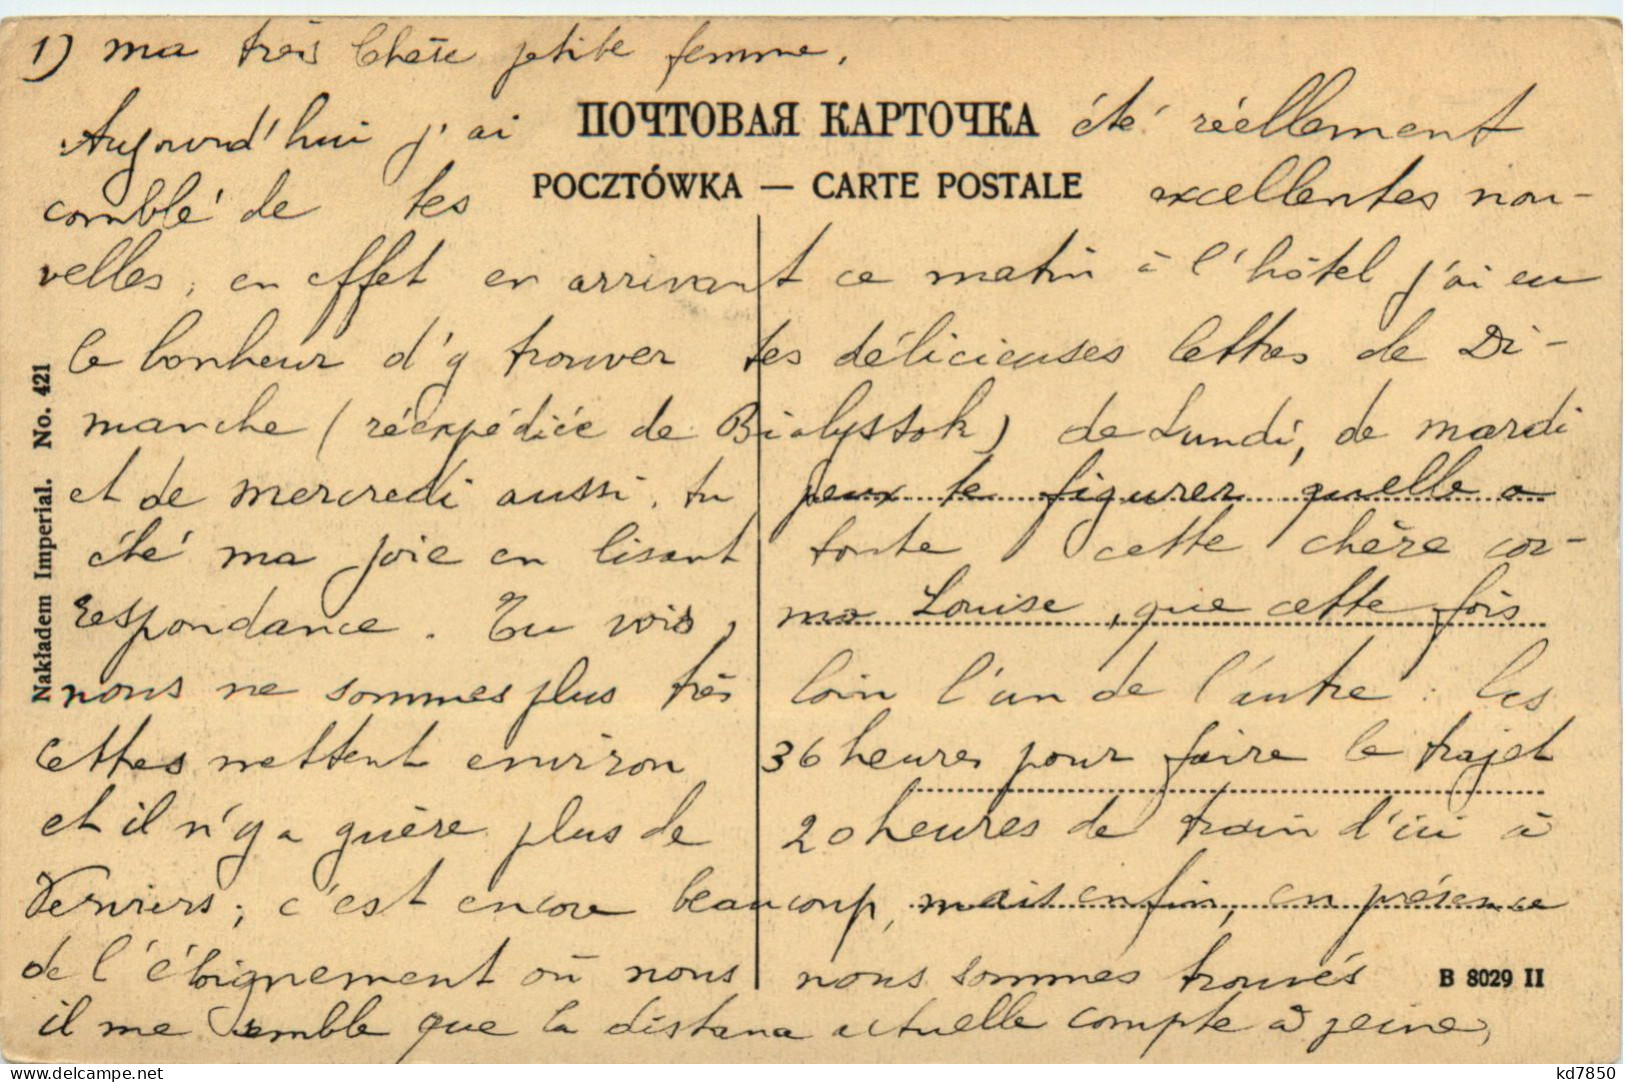 1) ma très Chère petite femme,
Aujourd'hui j'ai ПОЧТОВАЯ КАРТОЧКА été réellement
POCZTÓWKA — CARTE POSTALE
comblé de tes excellentes nou-
velles, en effet en arrivant ce matin à l'hôtel j'ai eu
le bonheur d'y trouver tes délicieuses lettres de Di-
manche (réexpédiée de Bialystok) de Lundi, de mardi
et de mercredi aussi, tu peux te figurer quelle a
été ma joie en lisant toute cette chère cor-
respondance. Tu vois, ma Louise, que cette fois
nous ne sommes plus très loin l'un de l'autre : les
lettres mettent environ 36 heures pour faire le trajet
et il n'y a guère plus de 20 heures de train d'ici à
Verviers; c'est encore beaucoup, mais enfin, en présence
de l'éloignement où nous nous sommes trouvés
il me semble que la distance actuelle compte à peine,
Nakładem Imperial. No. 421
B 8029 II
kd7850